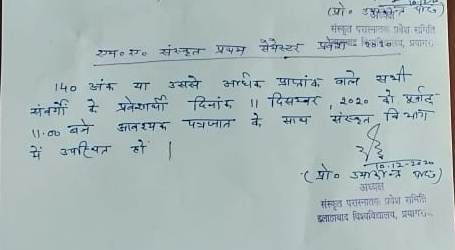 10-12-20
(प्रो० उमाकान्त यादव)
अध्यक्ष
संस्कृत परास्नातक प्रवेश समिति
इलाहाबाद विश्वविद्यालय, प्रयागराज
एम० ए० संस्कृत प्रथम सेमेस्टर प्रवेश 2020
140 अंक या उससे अधिक प्राप्तांक वाले सभी
संवर्गों के प्रवेशार्थी दिनांक 11 दिसम्बर, 2020 को पूर्वाह्न
11.00 बजे आवश्यक पत्रजात के साथ संस्कृत विभाग
में उपस्थित हों ।
10-12-2020
(प्रो० उमाकान्त यादव)
अध्यक्ष
संस्कृत परास्नातक प्रवेश समिति
इलाहाबाद विश्वविद्यालय, प्रयागराज